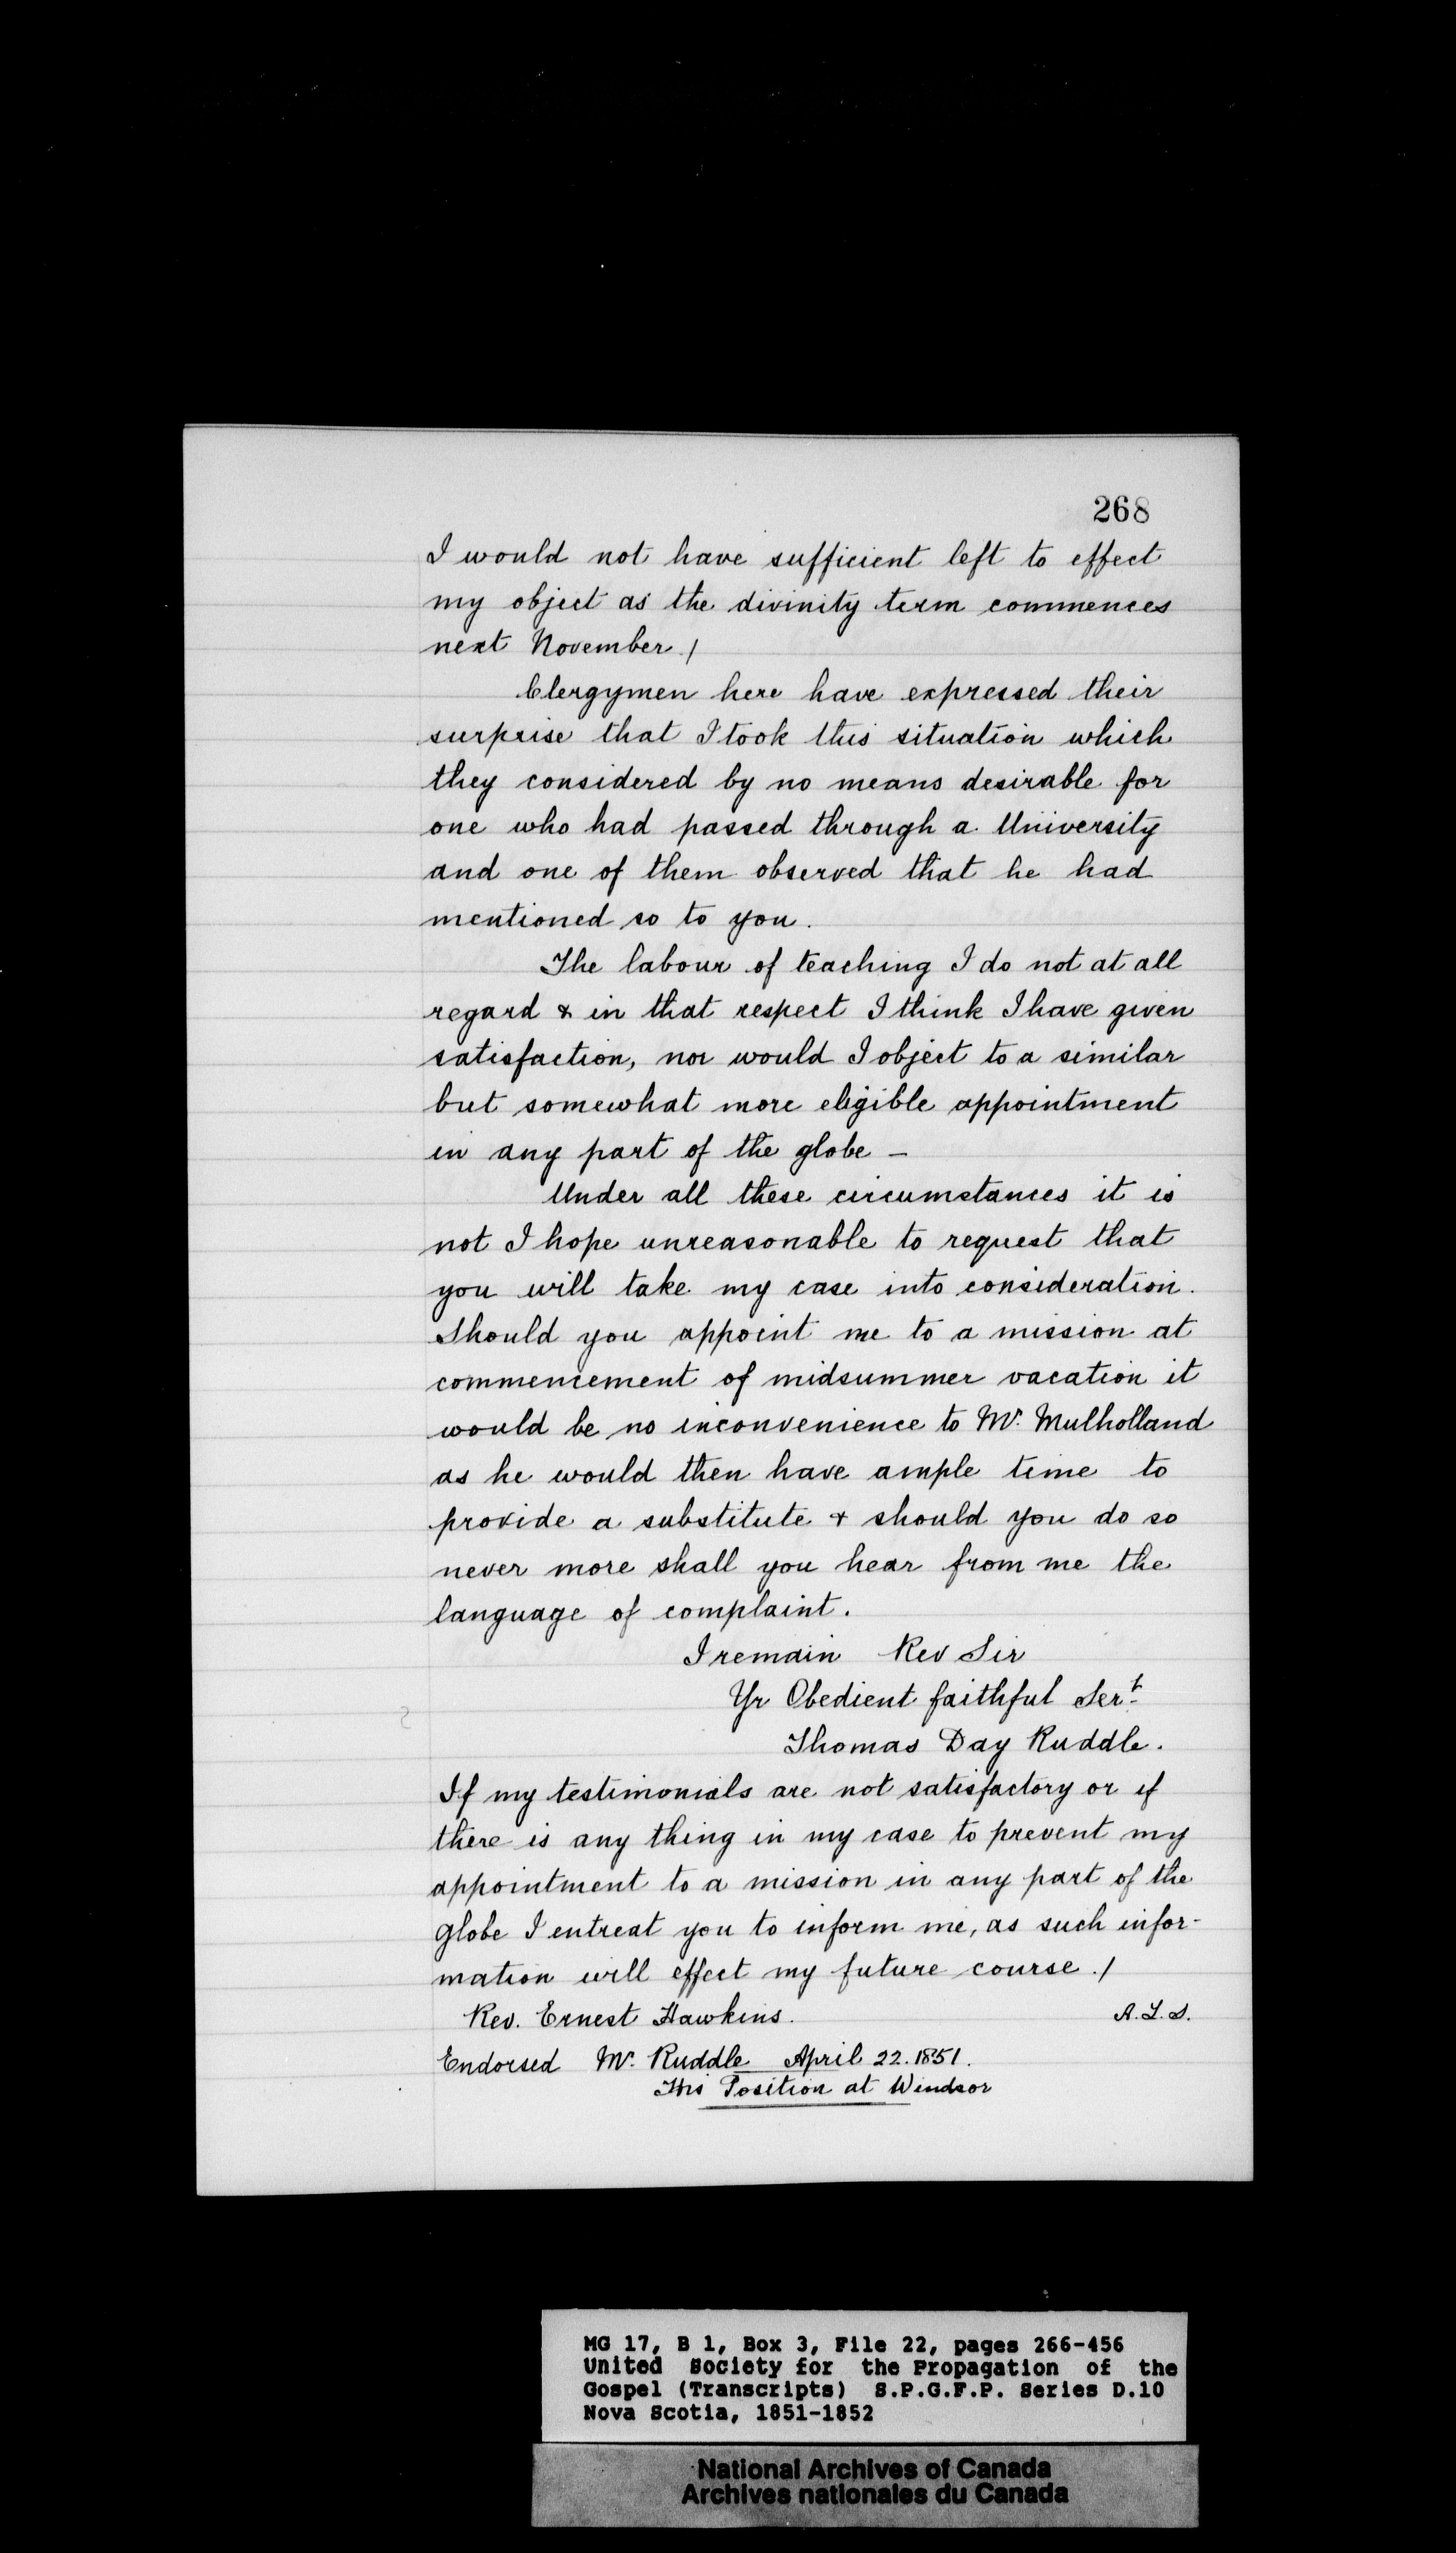 268
I would not have sufficient left to effect
my object as the divinity term commences
next November /
Clergymen here have expressed their
surprise that I took this situation which
they considered by no means desirable for
one who had passed through a University
and one of them observed that he had
mentioned so to you.
The labour of teaching I do not at all
regard & in that respect I think I have given
satisfaction, nor would I object to a similar
but somewhat more eligible appointment
in any part of the globe —
Under all these circumstances it is
not I hope unreasonable to request that
you will take my case into consideration.
Should you appoint me to a mission at
commencement of midsummer vacation it
would be no inconvenience to Mr. Mulholland
as he would then have ample time to
provide a substitute & should you do so
never more shall you hear from me the
language of complaint.
I remain Rev Sir
Yr Obedient faithful Sert.
Thomas Day Ruddle.
If my testimonials are not satisfactory or if
there is any thing in my case to prevent my
appointment to a mission in any part of the
globe I entreat you to inform me, as such infor-
mation will effect my future course. /
Rev. Ernest Hawkins. A.L.S.
Endorsed Mr. Ruddle April 22. 1851.
His Position at Windsor
MG 17, B 1, Box 3, File 22, pages 266-456
United Society for the Propagation of the
Gospel (Transcripts) S.P.G.F.P. Series D.10
Nova Scotia, 1851-1852
National Archives of Canada
Archives nationales du Canada